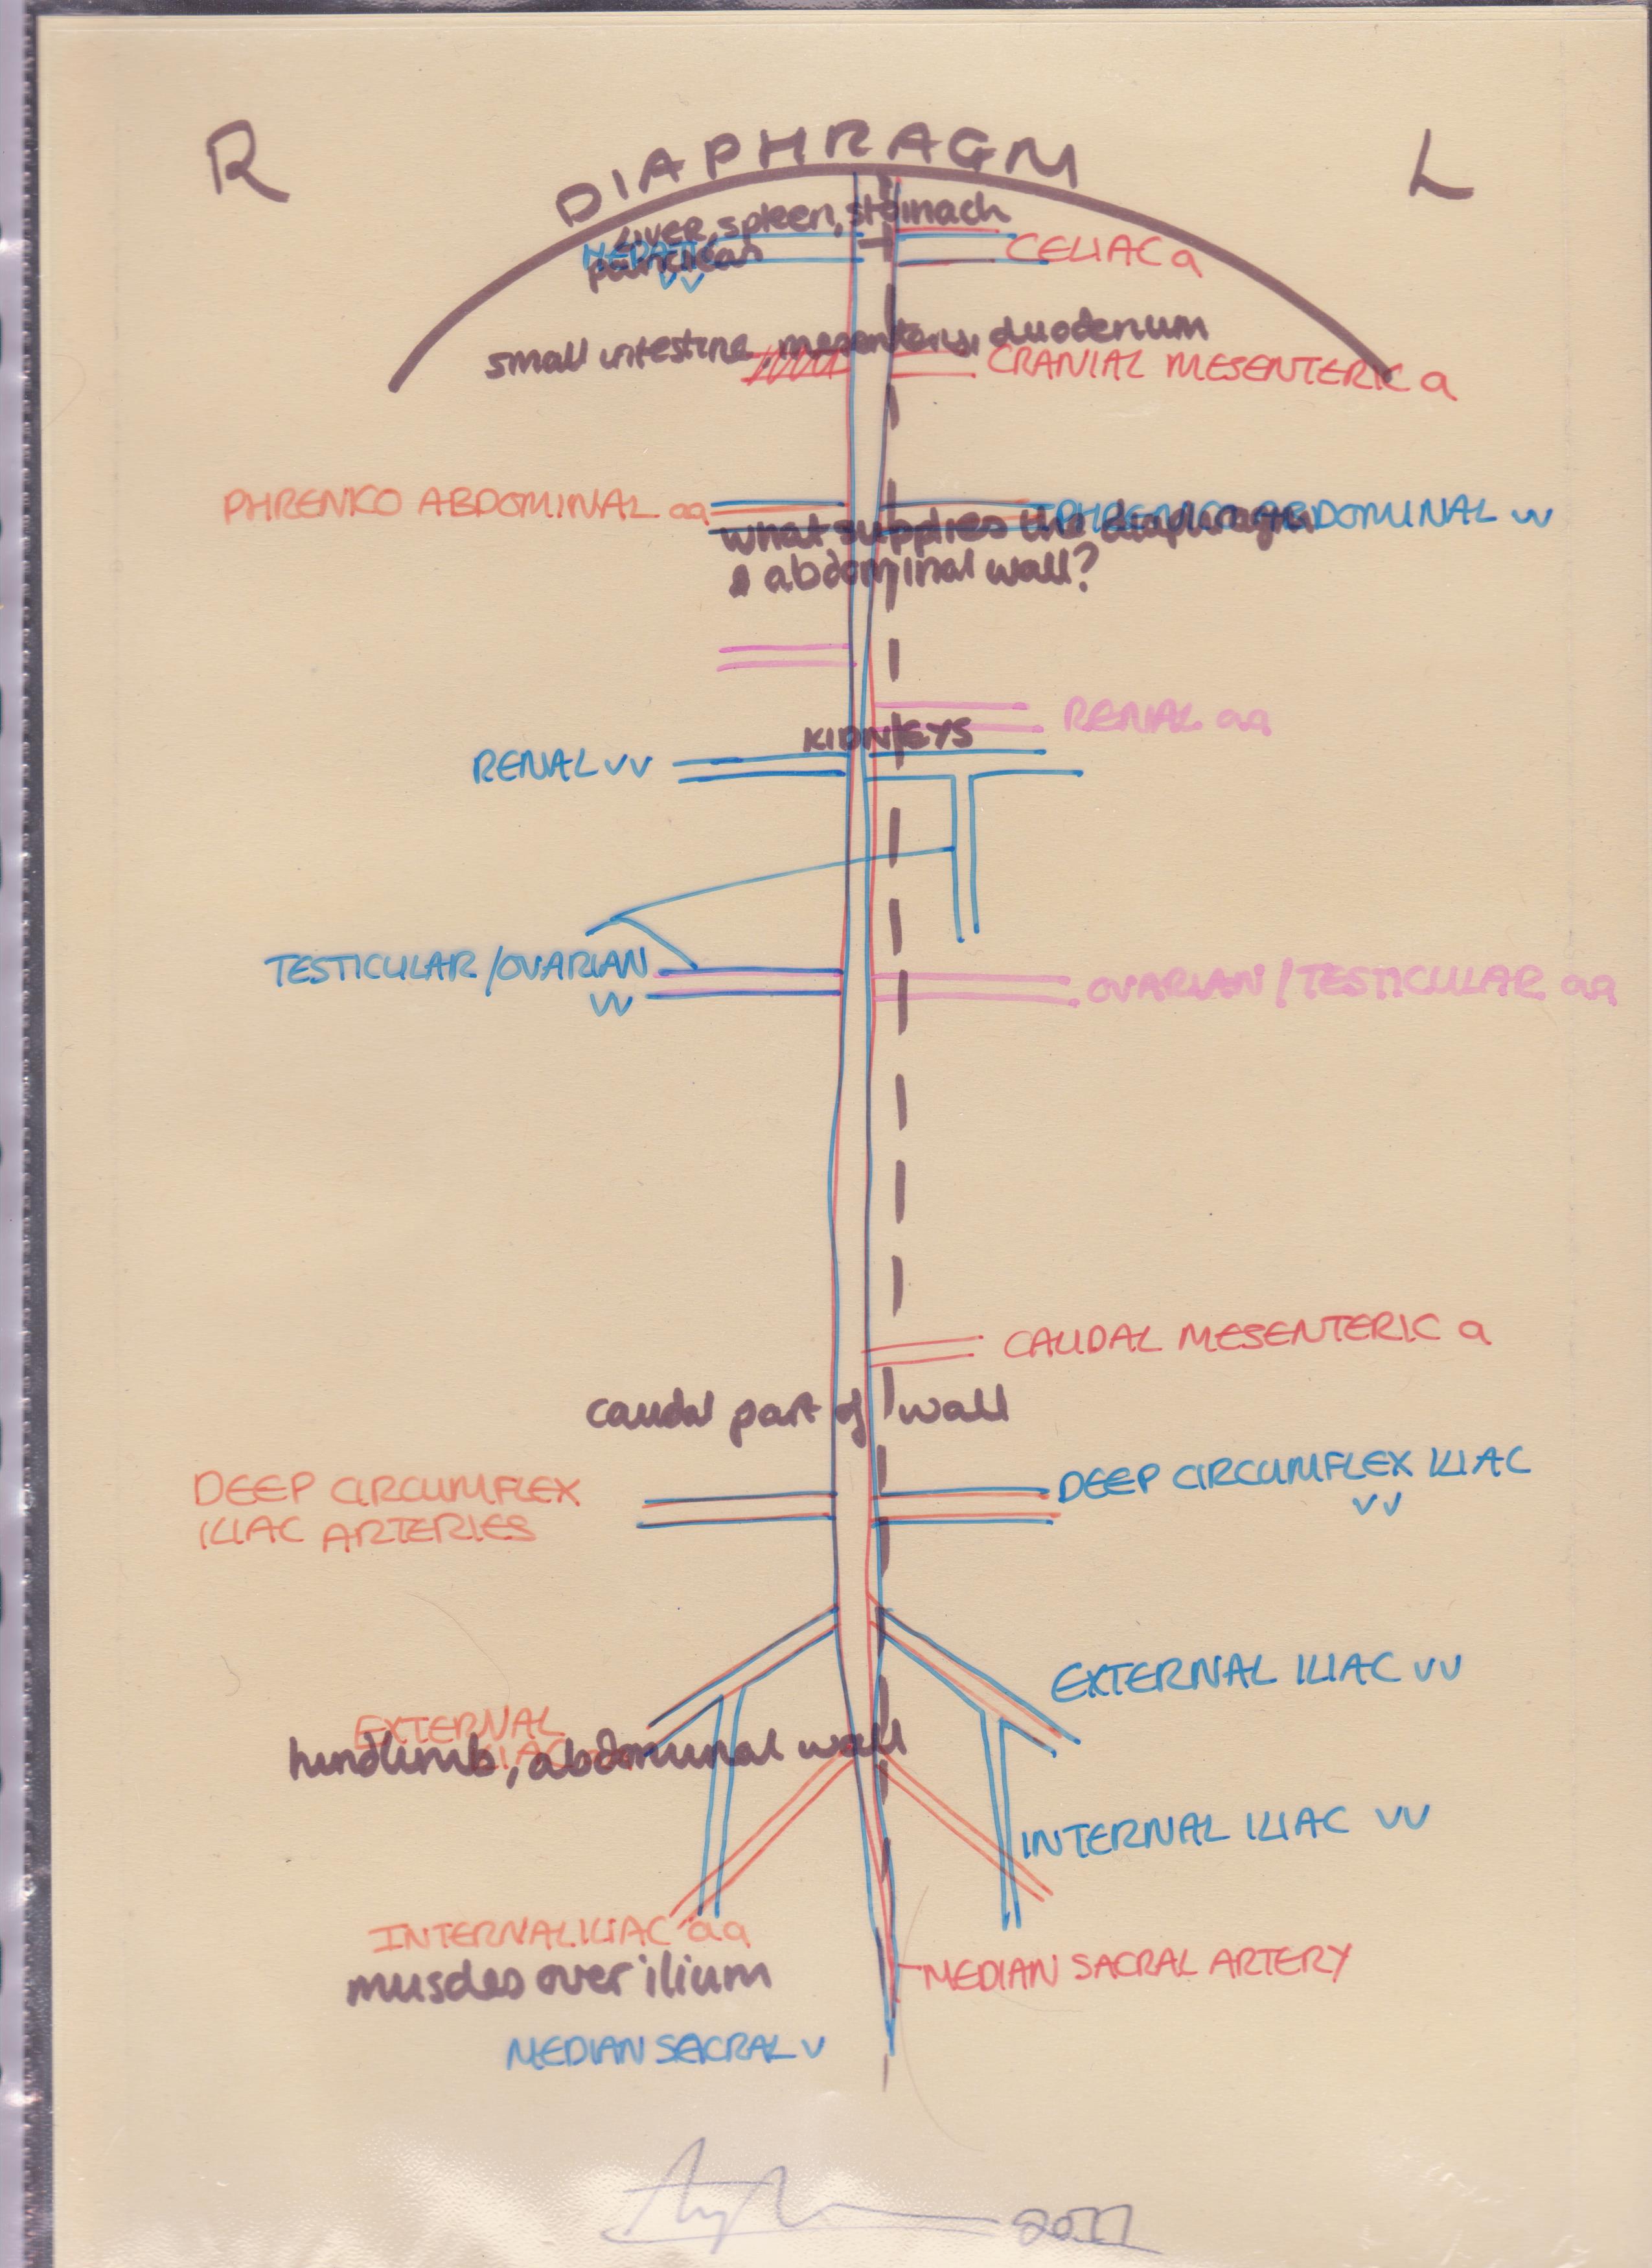 R
DIAPHRAGM
L
liver, spleen, stomach
HEPATIC
pancreas
vv
CELIAC a
small intestine, mesentery, duodenum
CRANIAL MESENTERIC a
PHRENICO ABDOMINAL aa
PHRENICO ABDOMINAL vv
what supplies the diaphragm
& abdominal wall?
RENAL aa
KIDNEYS
RENAL vv
TESTICULAR/OVARIAN
vv
OVARIAN/TESTICULAR aa
CAUDAL MESENTERIC a
caudal part of wall
DEEP CIRCUMFLEX
ILIAC ARTERIES
DEEP CIRCUMFLEX ILIAC
vv
EXTERNAL ILIAC vv
EXTERNAL
ILIAC
hindlimb, abdominal wall
INTERNAL ILIAC vv
INTERNAL ILIAC aa
muscles over ilium
MEDIAN SACRAL ARTERY
MEDIAN SACRAL v
2011